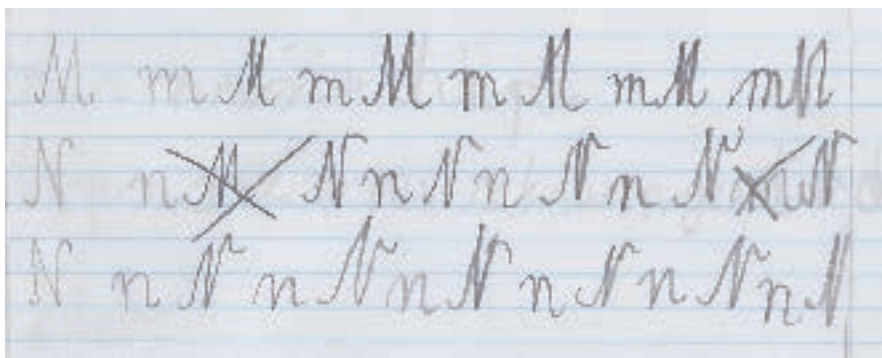 M m M m M m M m M m M
N n N n N n N n N N
N n N n N n N n N n N n N